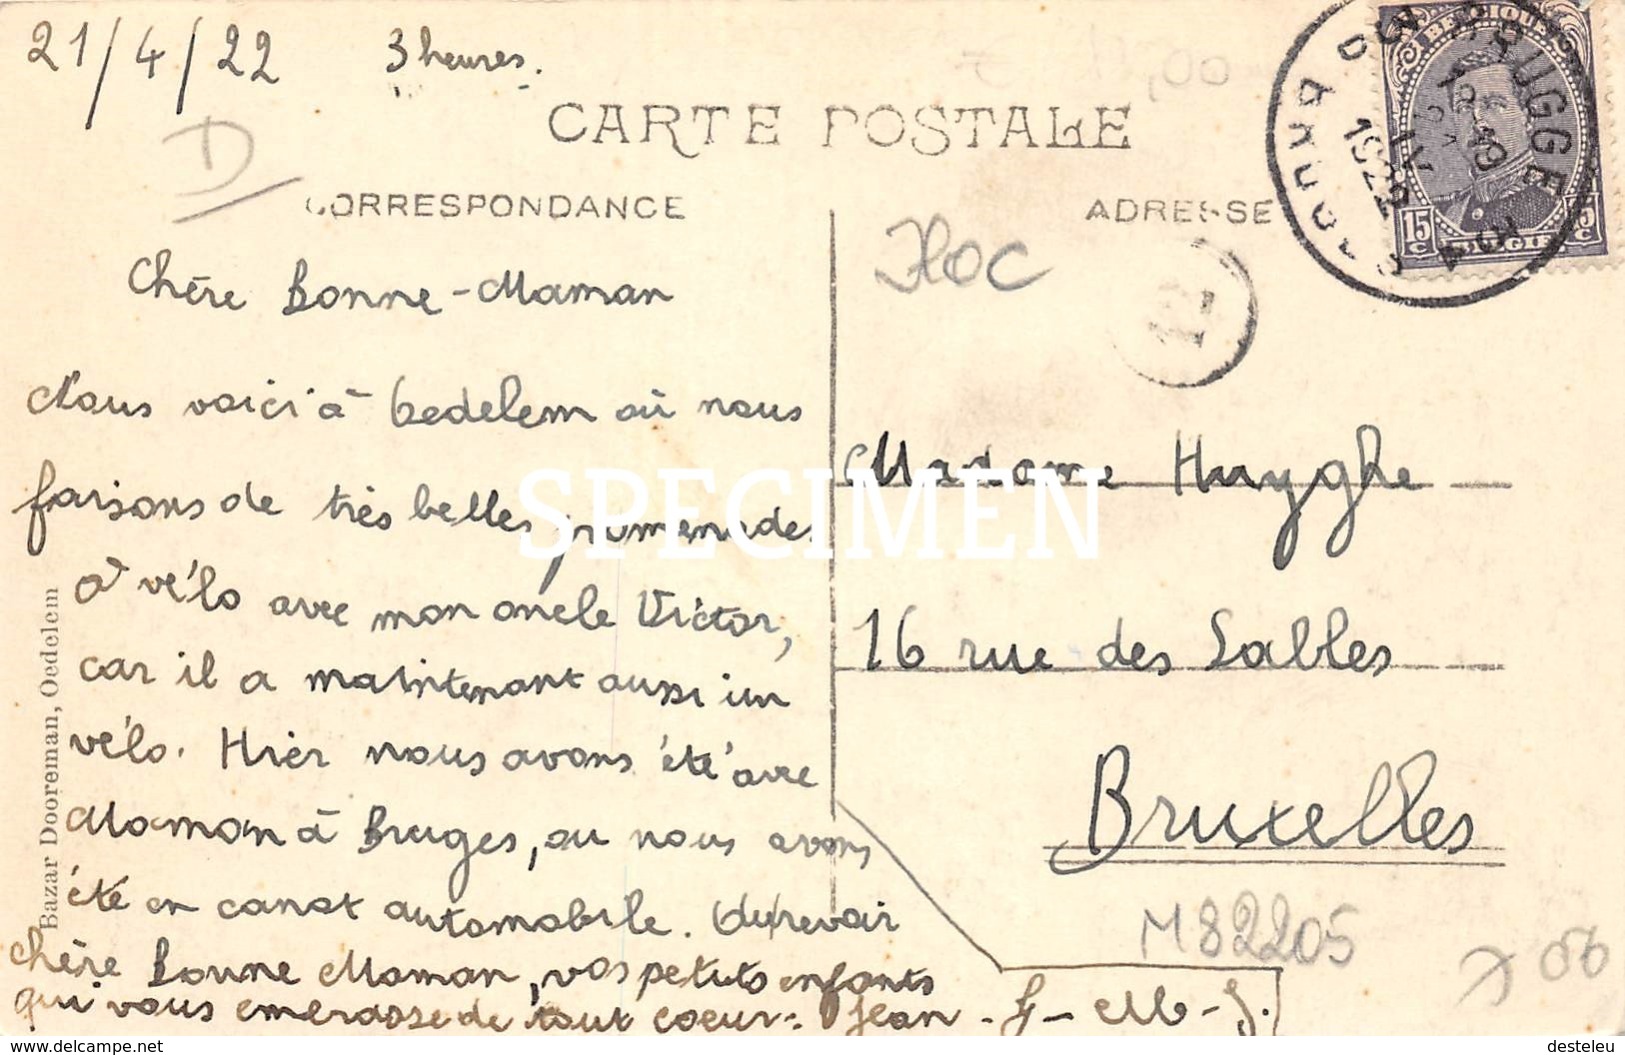 21/4/22 3 heures.
CARTE POSTALE
D
CORRESPONDANCE
ADRESSE
BELGIQUE
15 C
BELGIË
BRUGGE
1922
Chère Bonne-Maman
Nous voici à Oedelem où nous
faisons de très belles promenades
à vélo avec mon oncle Victor,
car il a maintenant aussi un
vélo. Hier nous avons été avec
Maman à Bruges, ou nous avons
été en canot automobile. Au revoir
chère Bonne Maman, vos petits enfants
qui vous embrasse de tout coeur: Jean - J - M - J.
Madame Huyghe
16 rue des Sables
Bruxelles
M82205
Bazar Dooreman, Oedelem
SPECIMEN
https://www.delcampe.net
desteleu